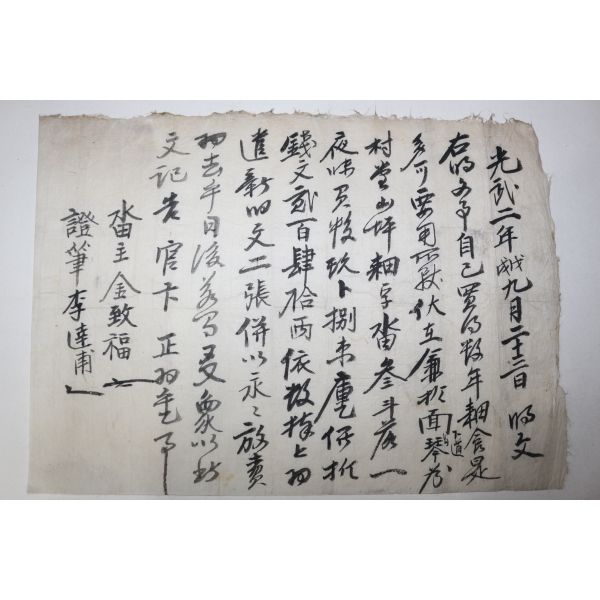 光武二年戊戌九月二十三日 明文
右明文事自己買得数年耕食是
多可要用所致伏在兼於面琴
下道
村堂山坪細字畓叁斗落一
夜味買牧玖卜捌束廛仔扵
錢文貳百肆拾兩依数捧上為
遣新旧文二張併以永〻放賣
為去乎日後若有是象以此
文記告官卞正為乎事
畓主金致福
證筆李達甫